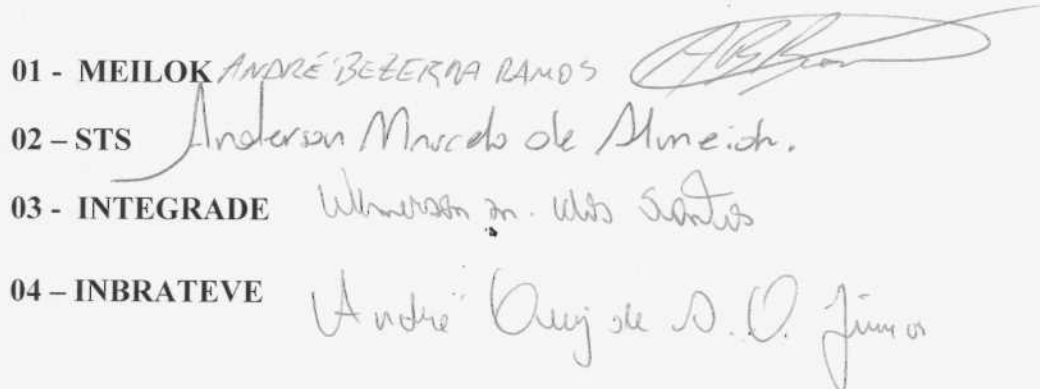 01 - MEILOK ANDRÉ BEZERRA RAMOS
02 – STS Anderson Marcelo de Almeida.
03 - INTEGRADE m. dos Santos
04 – INBRATEVE André Luiz de S. O. Júnior